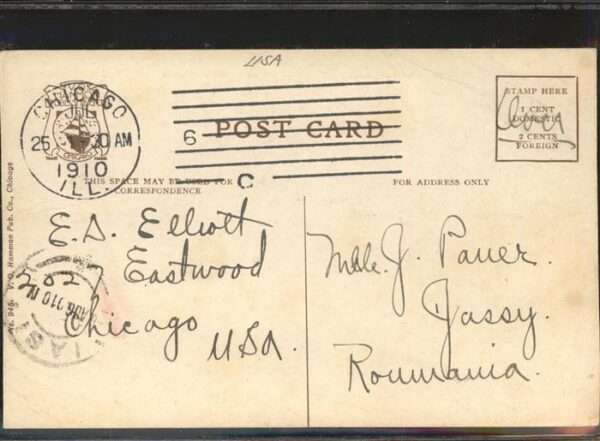 USA
CHICAGO
JUL
25 30 AM
1910
ILL.
6
C
POST CARD
STAMP HERE
1 CENT
DOMESTIC
2 CENTS
FOREIGN
THIS SPACE MAY BE USED FOR
CORRESPONDENCE
FOR ADDRESS ONLY
E. S. Elliott
Eastwood
Chicago
USA.
Mdlle. J. Pauer.
Jassy.
Roumania.
IASI
V. O. Hammon Pub. Co., Chicago